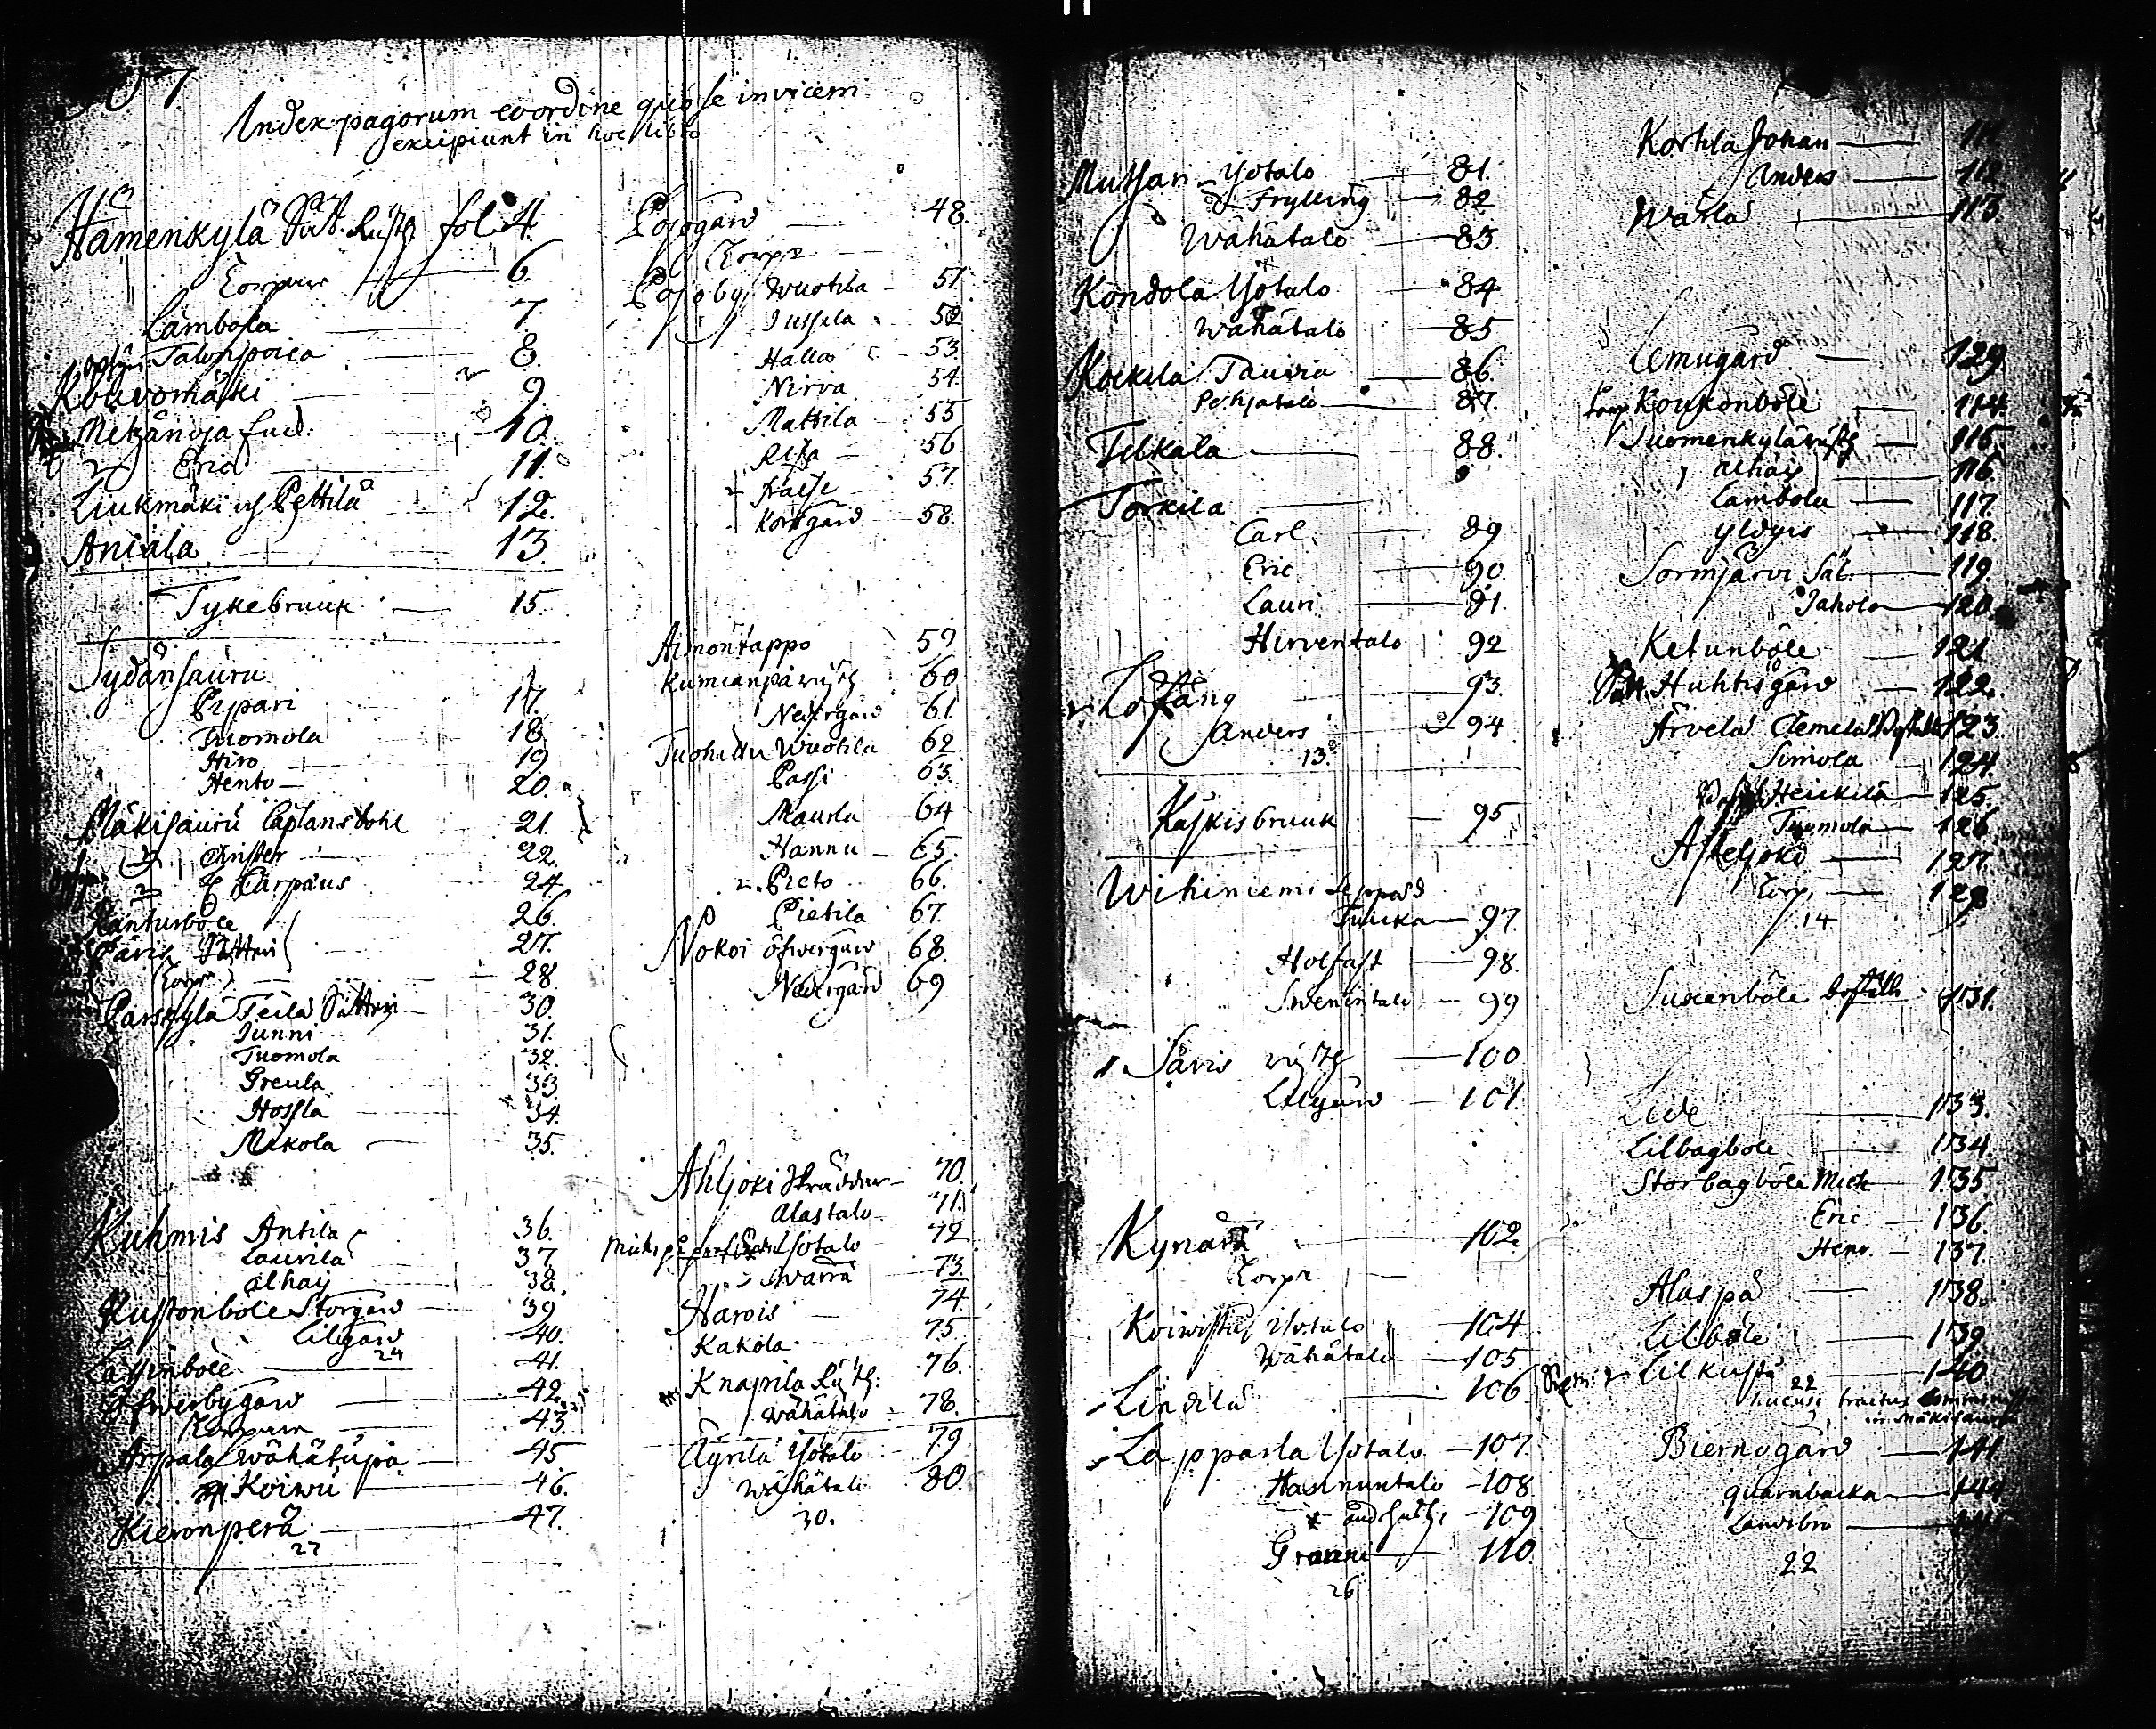 Index pagorum eo ordine quo se invicem
excipiunt in hoc libro
Hämenkylä Sät. Rusth fol. 4.
Torpare 6.
Lämbola 7.
Talonpoica 8.
Kouvomäki 9.
Metzänoja 10.
Eric 11.
Liukmäki och Pettilä 12.
Aniala 13.
Tykebruuk 15.
Sydänsauru
Pipari 17.
Tuomola 18.
Hiro 19
Hento 20.
Mäkisauru Caplansbohl 21.
Christer 22.
Carpäus 24.
Kanturböle 26.
Päris Sätteri 27.
Torp 28.
Pärskylä Teilä Sätteri 30.
Junni 31.
Tuomola 32.
Greula 33
Hossla 34.
Mikola 35.
Kuhmis Antila 36.
Laurila 37.
alhay 38.
Kustonböle Storgård 39
Lilgård 40.
24
Läyjinböle 41.
Öfwerbygård 42.
Torpare 43.
Arpala wähätupa 45
Koiwu 46.
Kieronperä 47.
27
Pojogård 48.
Torpr
Pojoby Wuotila 51.
Jussila 52
Halla 53.
Nirva 54
Mattila 55
Reka 56
57.
Korsgård 58.
Aimontappo 59
Kumianpä rusth 60
Nedergård 61.
Tuohittu Wuotila 62.
Passi 63.
Maurla 64
Hannu 65.
Pieto 66.
Pietila 67.
Nokoi öfwergård 68.
Nedergård 69
Ahljoki Skräddar 70.
Alastalo 71.
Yötalo 72
Swarra 73.
Harois 74.
Kakola 75
Knapila Rusth: 76.
wähätalo 78.
Äyrilä Yötalo 79
Wähätalo 80.
30.
Mutsari Yötalo 81.
Frylling 82
Wähätalo 83.
Kondola Yötalo 84
wähätalo 85
Kockila Tauria 86.
Pohjatalo 87.
Tilkala 88.
Torkila
Carl 89
Eric 90.
Lauri 91.
Hirventalo 92
Lofsäng 93.
Anders 94
13.
Kåskisbruuk 95
Wihiniemi Seppäs
Tuiika 97.
Holfast 98.
Swenintalo 99
Säris rusth 100
Lilgård 101.
Kynarä 102.
Torpr
Koiwisto Yötalo 104
Wähätalo 105
Lindila 106
Lapparla Yötalo 107.
Hannuntalo 108
109
Granni 110.
26
Kortila Johan 111.
Anders 112
Warla 113
Lemugård 129.
Koukonböle 114.
Suomenkylä rusth 115.
alhay 116.
Lambola 117.
Yldyis 118.
Sormjärvi Sät. 119.
Jahola 120.
Ketunböle 121
Sätt. Huhtisgård 122.
Ärvelä Clemelä 123.
Simola 124.
Heickilä 125.
Tuomola 126
Asteljoki 127.
Torp. 128
14
Suxenböle bostelle 131.
Lede 133.
Lilbagböle 134.
Storbagböle Mich 135
Eric 136
Henr. 137.
Alaspä 138.
Lilböle 139.
Lilkustä 140
22
in Mäkisauru
Biernogård 141
quarnbacka 144
Landsbo
22